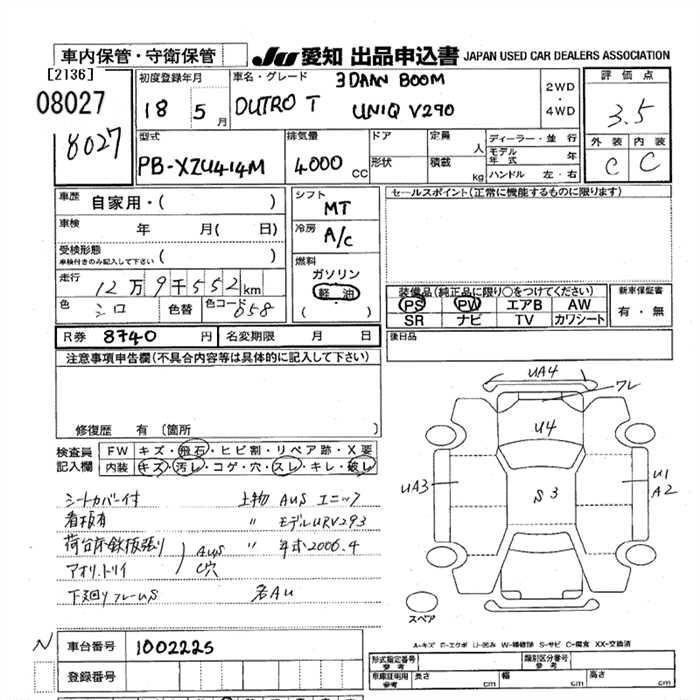 車内保管・守衛保管
JU 愛知 出品申込書 JAPAN USED CAR DEALERS ASSOCIATION
[2136]
08027
8027
初度登録年月
18 5月
車名・グレード
3DAAN BOOM
DUTRO T UNIQ V290
2WD・4WD
評価点
3.5
外装 内装
C C
型式
PB-XZU414M
排気量
4000 CC
ドア
形状
定員 人
積載 kg
ディーラー・並行
モデル年式 年
ハンドル 左・右
車歴 自家用・( )
車検 年 月( 日)
受検形態
車検付きのみ記入して下さい ( )
走行 12万9千552km
色 シロ 色替 色コード 058
シフト
MT
冷房
A/C
燃料
ガソリン
軽油
( )
セールスポイント(正常に機能するものに限ります)
装備品(純正品に限り○をつけてください)
PS PW エアB AW
SR ナビ TV カワシート
新車保証書
有・無
R券 8740円 名変期限 月 日
後日品
注意事項申告欄(不具合内容等は具体的に記入して下さい)
修復歴 有 〔箇所 〕
検査員記入欄
FW キズ・飛石・ヒビ割・リペア跡・X要
内装 キズ・汚レ・コゲ・穴・スレ・キレ・破レ
シートカバー付 上物 AUS ユニック
看板有 〃 モデルURV293
荷台床鉄板張り AUS 〃 年式2006.4
アオリ.トリイ C穴
下廻りフレームS 名AU
UA4
ワレ
U4
UA3
S3
U1
A2
スペア
A-キズ E-エクボ U-凹み W-補修跡 S-サビ C-腐食 XX-交換済
N
車台番号 1002225
登録番号
形式指定番号 参考
類別区分番号 参考
車庫証明用 参考 長さ cm 幅 cm 高さ cm